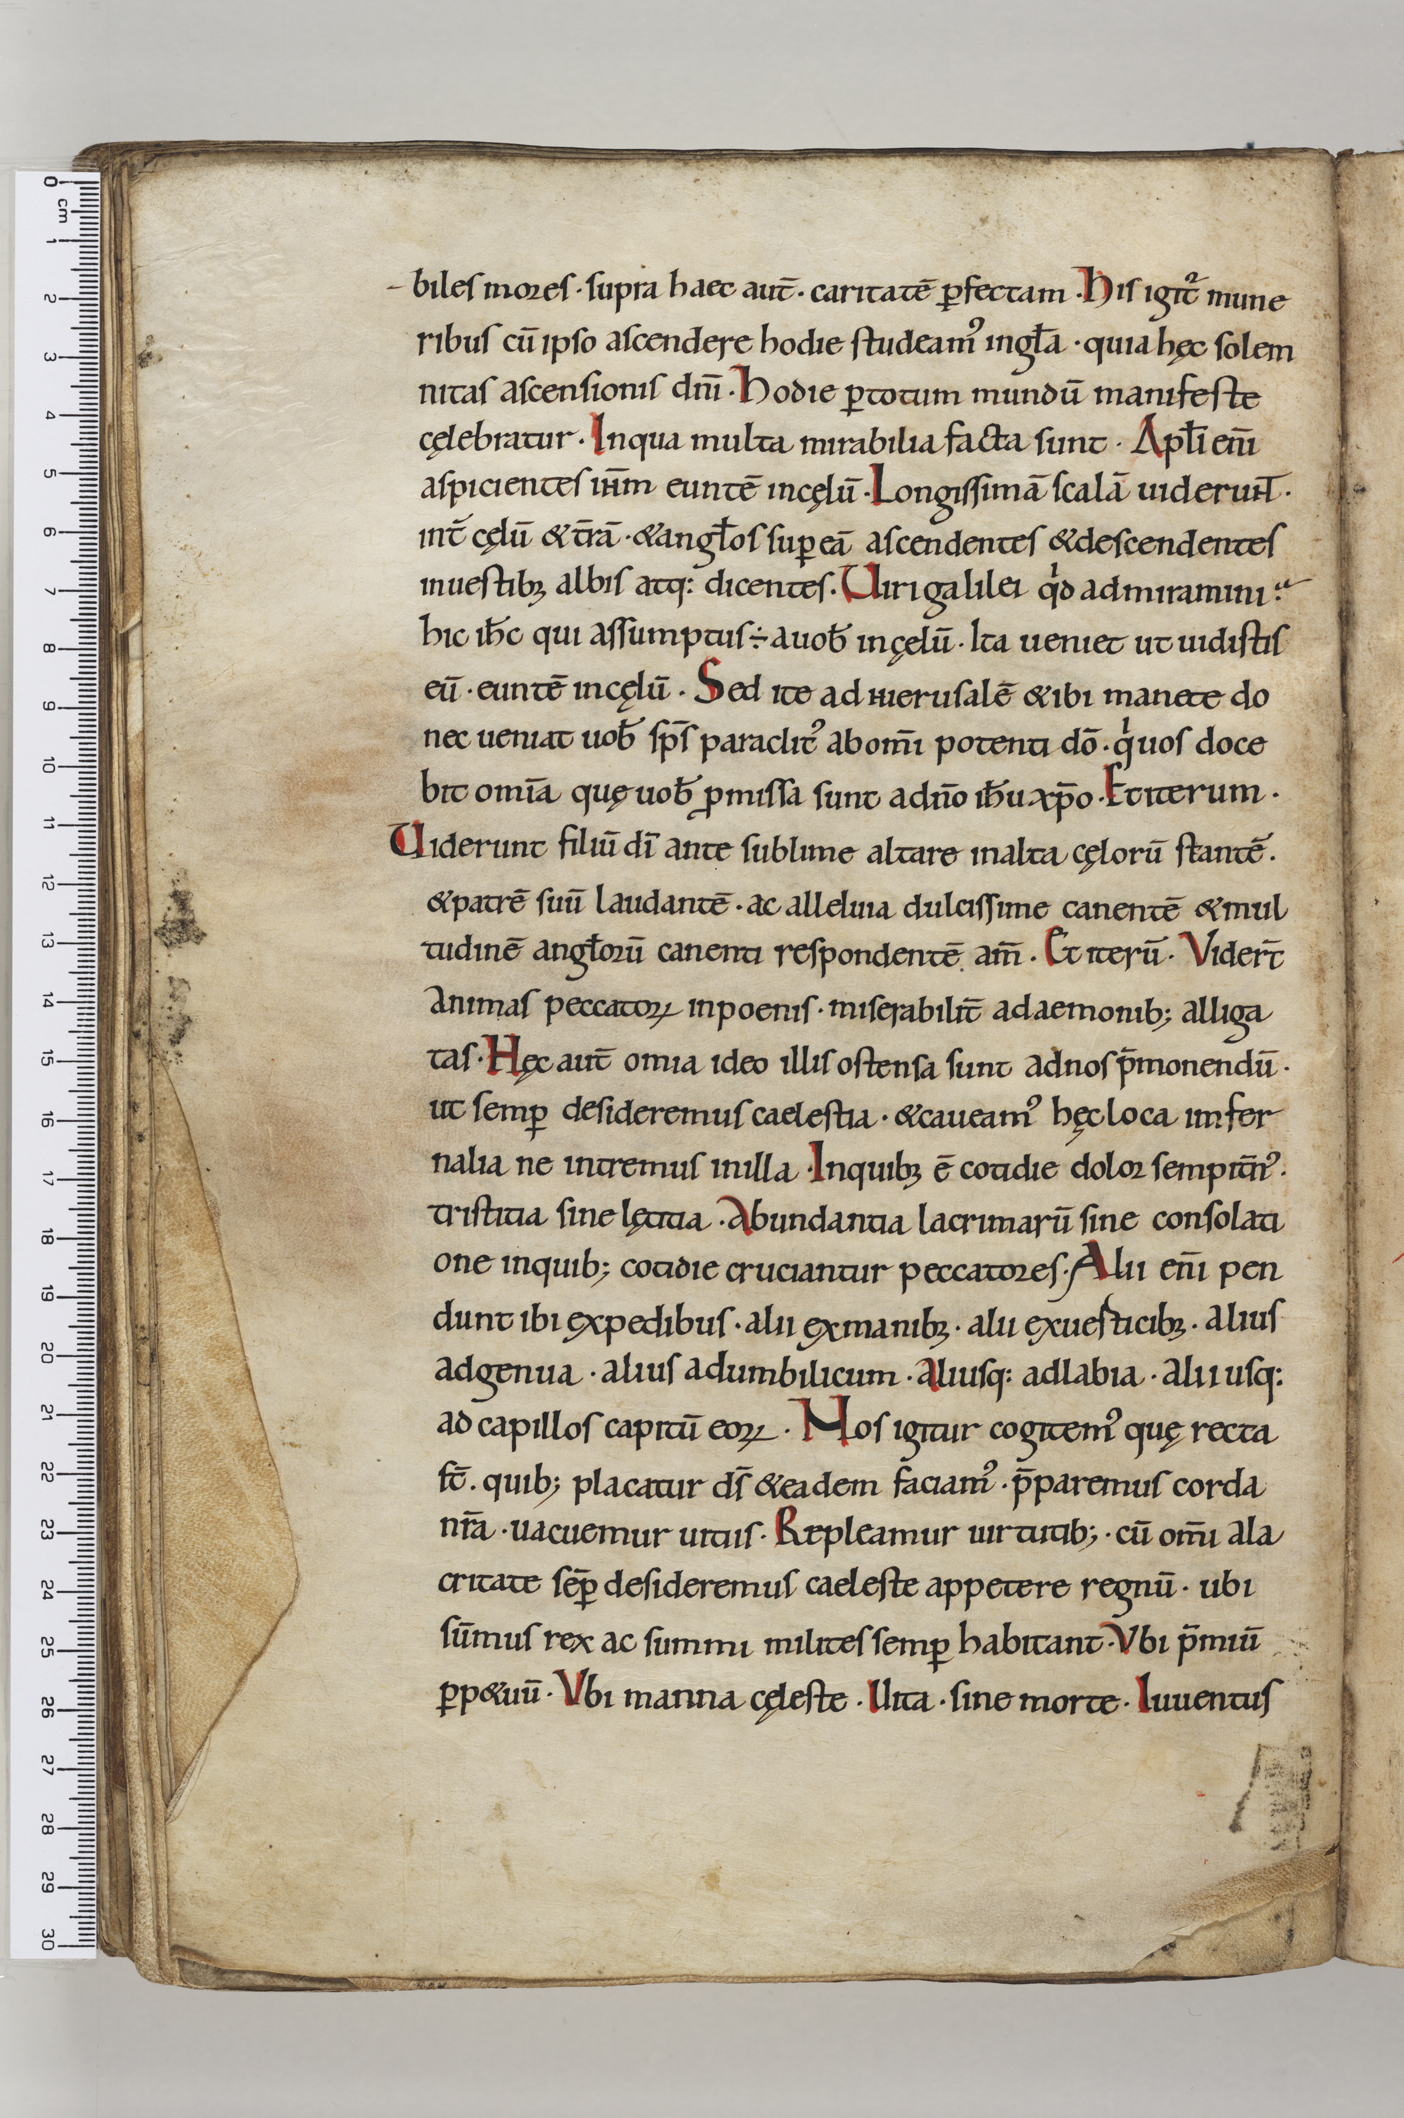 biles mores · supra haec aut̄ · caritatē ꝑfectam · His igit᷑ mune
ribus cū ipso ascendere hodie studeamꝰ ingła · quia hęc solem
nitas ascensionis dn̄i · Hodie ꝑtotum mundū manifeste
cęlebratur · Inqua multa mirabilia facta sunt · Apłi eni̅
aspicientes iħm euntē incęlū · Longissimā scalā uiderunt̄ ·
int̄ cęlū & t̄rā · & angłos suꝑ eā ascendentes & descendentes
inuestibꝫ albis atq: dicentes · Uiri galilei qͥd admiramini :
hic ih̄c qui assumptus ÷ auob̄ incęlū · Ita ueniet ut uidistis
eū · euntē incęlū · Sed ite ad hierusalē & ibi manete do
nec ueniat uob̄ sp̄s paraclitꝰ abom̄i potenti dō · qͥ uos doce
bit omīa quę uob̄ ꝓmissa sunt adn̄o ih̄u xp̄o · Et iterum ·
Uiderunt filiū dī ante sublime altare inalta cęlorū stantē ·
& patrē suū laudantē · ac alleluia dulcissime canentē & mul
tudinē angłorū canenti respondentē am̄ · Et iterū · Vider̄t
animas peccatoꝝ inpoenis · miserabilit̄ adaemonib; alliga
tas · Hęc aut̄ omia ideo illis ostensa sunt adnos p̄monendū ·
ut semꝑ desideremus caelestia · & caueamꝰ hęc loca imfer
nalia ne intremus inilla · Inquibꝫ ē cotidie dolor sempit̄nꝰ ·
tristitia sine lętitia · Abundantia lacrimarū sine consolati
one inquib; cotidie cruciantur peccatores · Alii eni̅ pen
dunt ibi expedibus · alii exmanibꝫ · alii exuesticibꝫ · alius
adgenua · alius adumbilicum · aliusq: adlabia · alii usq:
ad capillos capitū eoꝝ · Nos igitur cogitemꝰ quę recta
st̄ · quib; placatur ds̄ & eadem faciamꝰ · p̄paremus corda
nr̄a · uacuemur uitiis · Repleamur uirtutib; · cū om̄i ala
critate sēꝑ desideremus caeleste appetere regnū · ubi
sūmus rex ac summi milites semꝑ habitant · Vbi p̄miū
ꝑp&uū · Vbi manna cęleste · Uita · sine morte · Iuuentus
0 cm 1 2 3 4 5 6 7 8 9 10 11 12 13 14 15 16 17 18 19 20 21 22 23 24 25 26 27 28 29 30